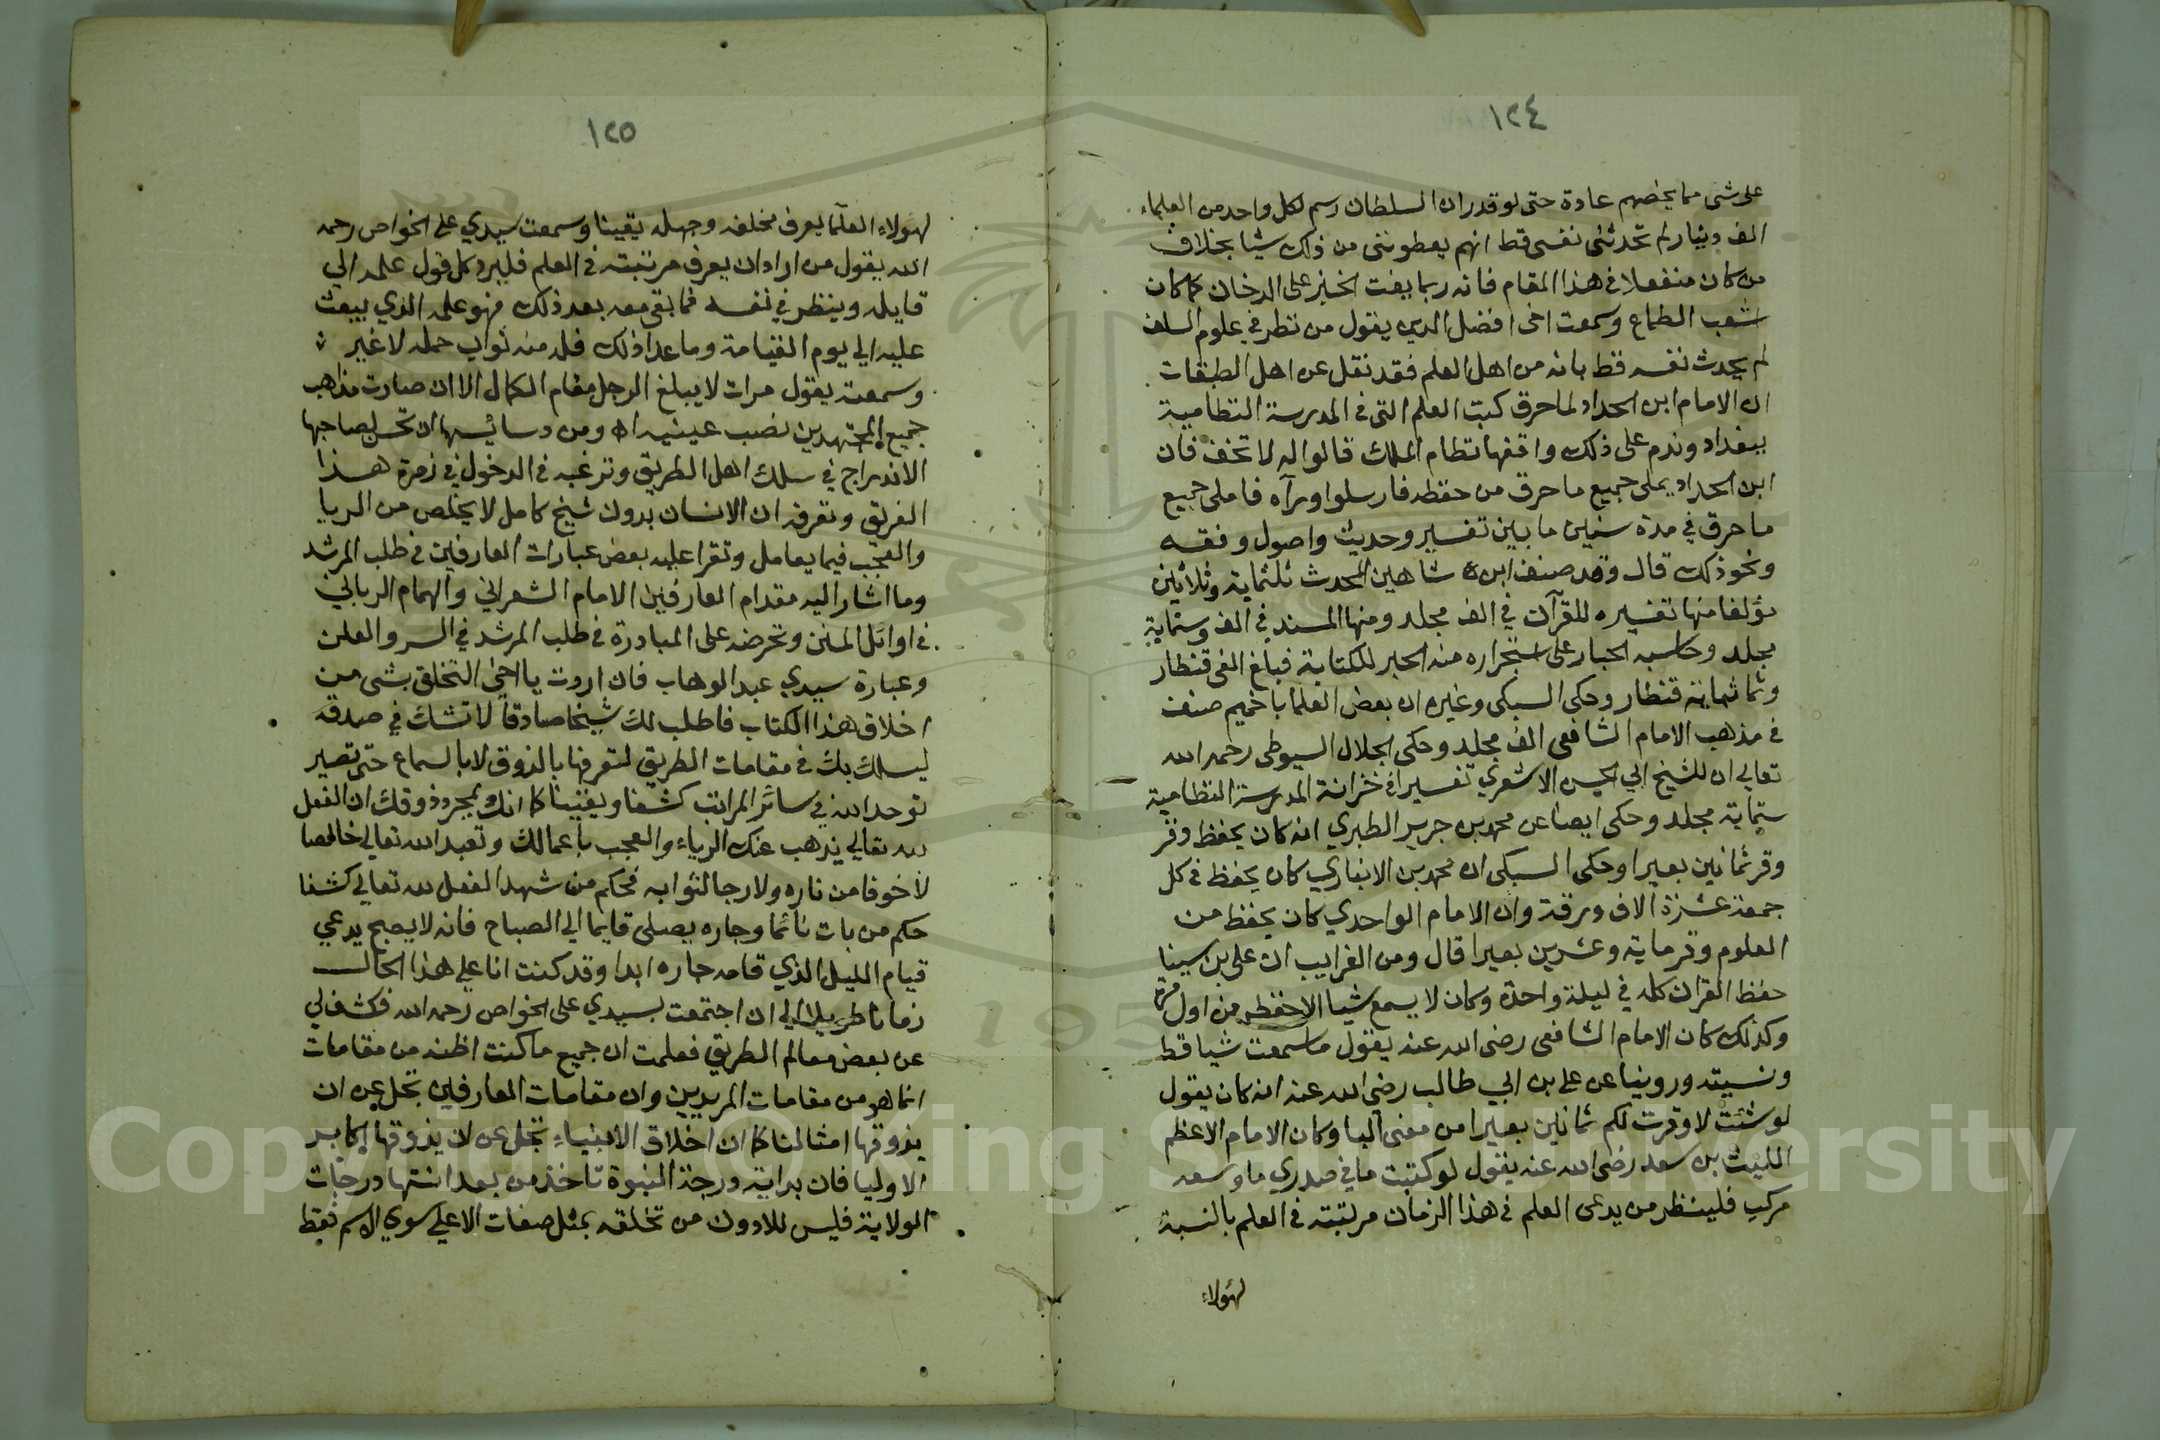 ١٢٤
على شى مما يخصهم عادة حتى لو قدر ان السلطان رسم لكل واحد من العلماء
الف دينار لم تحدثنى نفسى قط انهم يعطوننى من ذلك شيا بخلاف
من كان منفعلا فى هذا المقام فانه ربما يفت الخبز على الدخان كما كان
اشعب الطماع وسمعت اخى افضل الدين يقول من نظر في علوم السلف
لم يحدث نفسه قط بانه من اهل العلم فقد نقل عن اهل الطبقات
ان الامام ابن الحداد لما حرق كتب العلم التى فى المدرسة النظامية
ببغداد وندم على ذلك واقفها نظام الملك قالوا له لا تخف فان
ابن الحداد يملى جميع ما حرق من حفظه فارسلوا وراه فاملى جميع
ما حرق في مدة سنين ما بين تفسير وحديث واصول وفقه
ونحو ذلك قال وقد صنف ابن شاهين المحدث ثلثماية وثلاثين
مؤلفا منها تفسيره للقرآن في الف مجلد ومنها المسند في الف وستماية
مجلد وحاسبه الحبار على استجراره منه الحبر للكتابة فبلغ الفى قنطار
وثماثماية قنطار وحكى السبكى وغيره ان بعض العلما باخميم صنف
فى مذهب الامام الشافعى الف مجلد وحكى الجلال السيوطى رحمه الله
تعالى ان للشيخ ابي الحسن الاشعري تفسيرا فى خزانة المدرسة النظامية
ستماية مجلد وحكى ايضا عن محمد بن جرير الطبري انه كان يحفظ وقر
وقر ثمانين بعيرا وحكى السبكى ان محمد بن الانباري كان يحفظ فى كل
جمعة عشرة الاف ورقة وان الامام الواحدي كان يحفظ من
العلوم وقر ماية وعشرين بعيرا قال ومن الغرايب ان على بن سينا
حفظ القران كله في ليلة واحدة وكان لا يسمع شيا الا حفظه من اول مرة
وكذلك كان الامام الشافعى رضى الله عنه يقول ما سمعت شيا قط
ونسيته وروينا عن على بن ابي طالب رضى الله عنه انه كان يقول
لو شئت لاوقرت لكم ثمانين بعيرا من معنى البا وكان الامام الاعظم
الليث بن سعد رضى الله عنه يقول لو كتبت ما في صدري ما وسعه
مركب فلينظر من يدعى العلم فى هذا الزمان مرتبته فى العلم بالنسبة
لهولاء
١٢٥
لهولاء العلما يعرف مخلفه وجهله يقينا وسمعت سيدي على الخواص رحمه
الله يقول من اراد ان يعرف مرتبته فى العلم فليرد كل قول علمه الي
قايله وينظر في نفسه فما بقى معه بعد ذلك فهو علمه الذي يبعث
عليه الي يوم القيامة وما عدا ذلك فله منه ثواب حمله لا غير
وسمعته يقول مرات لا يبلغ الرجل مقام الكمال الا ان صارت مذاهب
جميع المجتهدين نصب عينيه اه ومن دسائسها ان تحسن لصاحبها
الاندراج في سلك اهل الطريق وترغبه فى الدخول في زمرة هذا
الفريق وتعرفه ان الانسان بدون شيخ كامل لا يخلص من الريا
والعجب فيما يعامل وتقرا عليه بعض عبارات العارفين فى طلب المرشد
وما اشار اليه مقدام العارفين الامام الشعراني والهمام الرباني
فى اوائل المنن وتحرضه على المبادرة فى طلب المرشد في السر والعلن
وعبارة سيدي عبد الوهاب فان اردت يا اخى التخلق بشى من
اخلاق هذا الكتاب فاطلب لك شيخا صادقا لا تشك في صدقه
ليسلك بك فى مقامات الطريق لتعرفها بالذوق لا بالسماع حتى تصير
توحد الله في سائر المراتب كشفا ويقينا كما انك بمجرد ذوقك ان الفعل
لله تعالي يذهب عنك الرياء والعجب باعمالك وتعبد الله تعالي خالصا
لا خوفا من ناره ولا رجا لثوابه فحكم من شهد الفعل لله تعالي كشفا
حكم من بات نائما وجاره يصلى قايما الي الصباح فانه لا يصح يدعي
قيام الليل الذي قامه جاره ابدا وقد كنت انا علي هذا الحال
زمانا طويلا الي ان اجتمعت بسيدي على الخواص رحمه الله فكشف لي
عن بعض معالم الطريق فعلمت ان جميع ما كنت اظنه من مقامات
انما هو من مقامات المريدين وان مقامات العارفين تجل عن ان
يذوقها امثالنا كما ان اخلاق الانبياء تجل عن ان يذوقها اكابر
الاوليا فان بداية درجة النبوة تاخذ من بعد انتها درجات
الولاية فليس للادون من تخلقه بمثل صفات الاعلي سوي الاسم فقط
Copyright © King Saud University
195